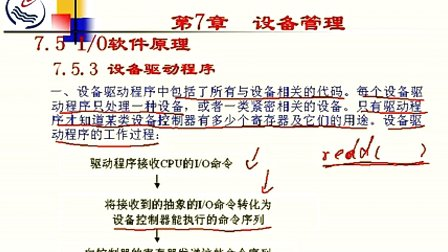 第7章 设备管理
7.5 I/O软件原理
7.5.3 设备驱动程序
一、设备驱动程序中包括了所有与设备相关的代码。每个设备驱
动程序只处理一种设备，或者一类紧密相关的设备。只有驱动程
序才知道某类设备控制器有多少个寄存器及它们的用途。设备驱
动程序的工作过程：
驱动程序接收CPU的I/O命令
read( )
将接收到的抽象的I/O命令转化为
设备控制器能执行的命令序列
向控制器的寄存器发送这些命令序列